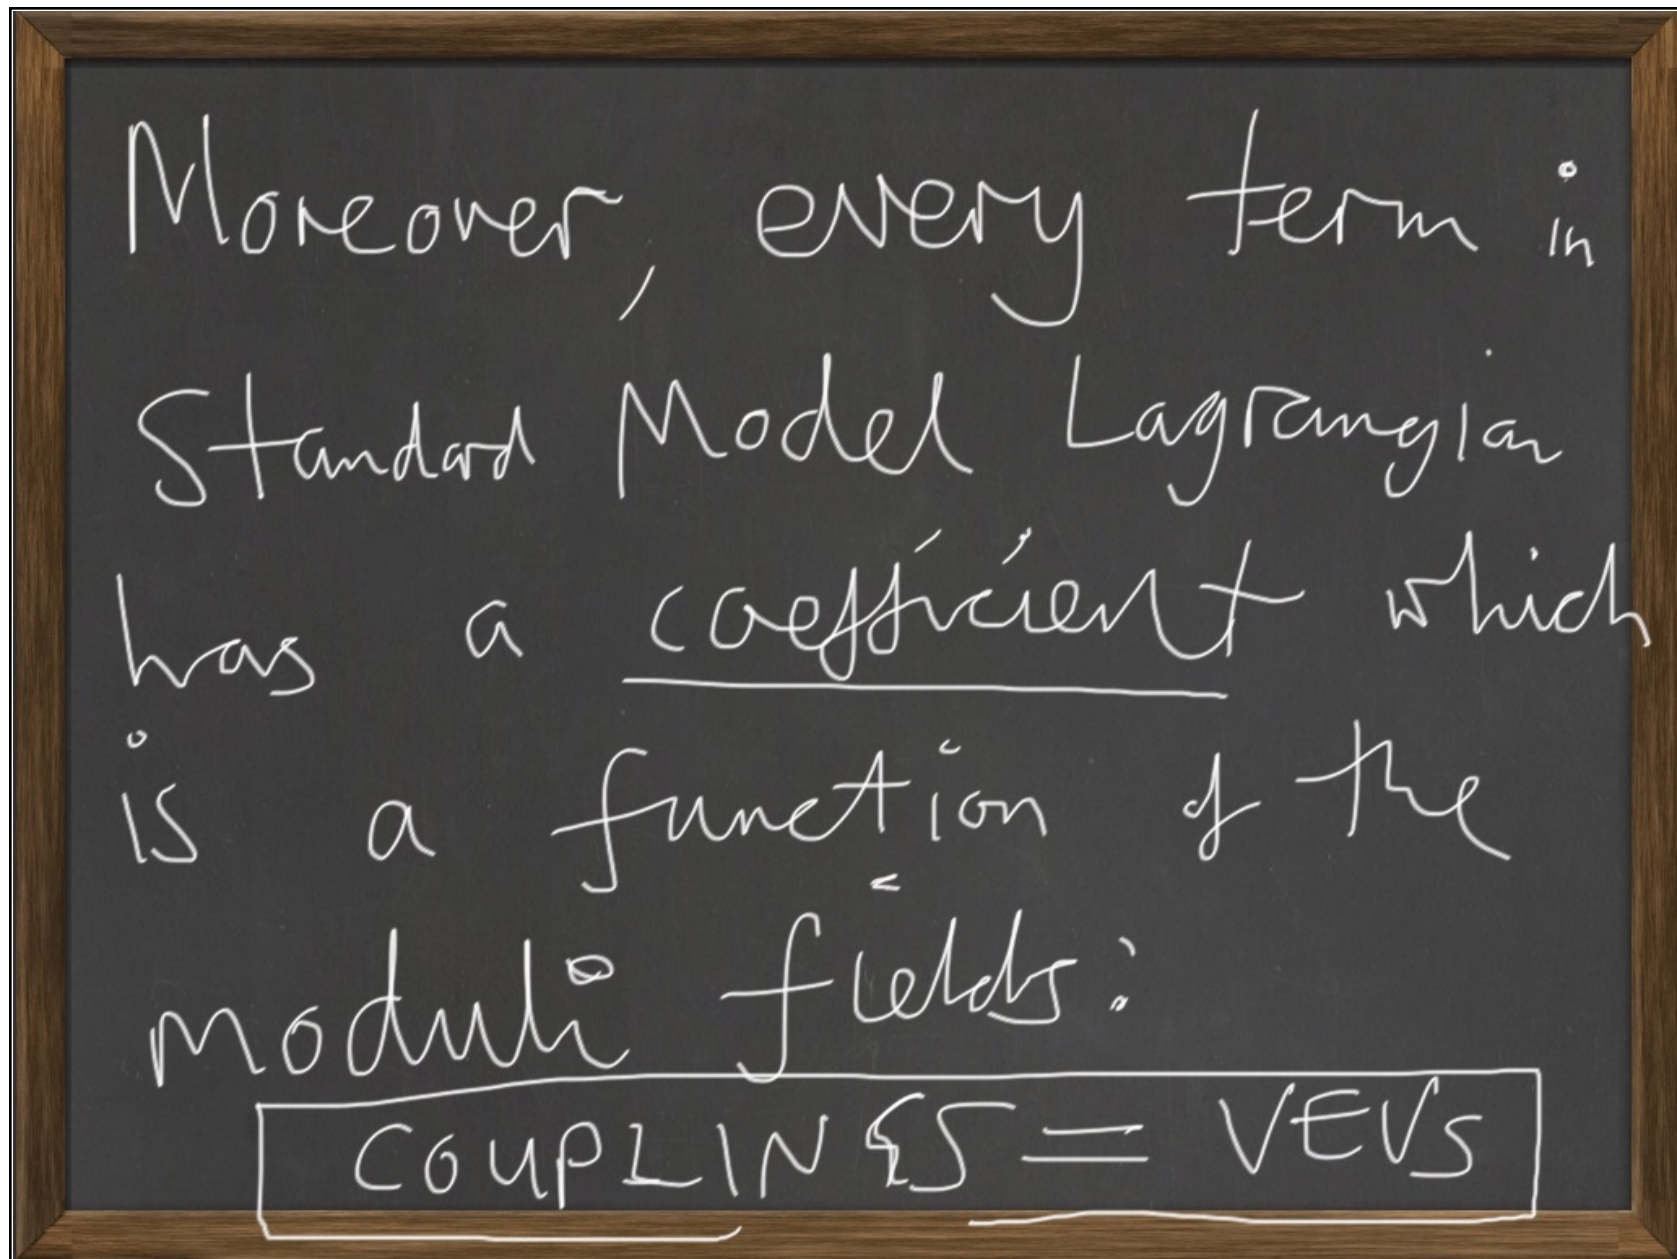 Moreover, every term in
Standard Model Lagrangian
has a coefficient which
is a function of the
moduli fields:
COUPLINGS = VEVs